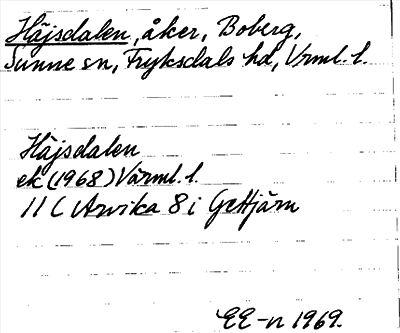 Häjsdalen, åker, Boberg,
Sunne sn, Fryksdals hd, Vrml. l.
Häjsdalen
ek (1968) Värml. l.
11 C Arvika 8 i Gettjärn
EE-n 1969.